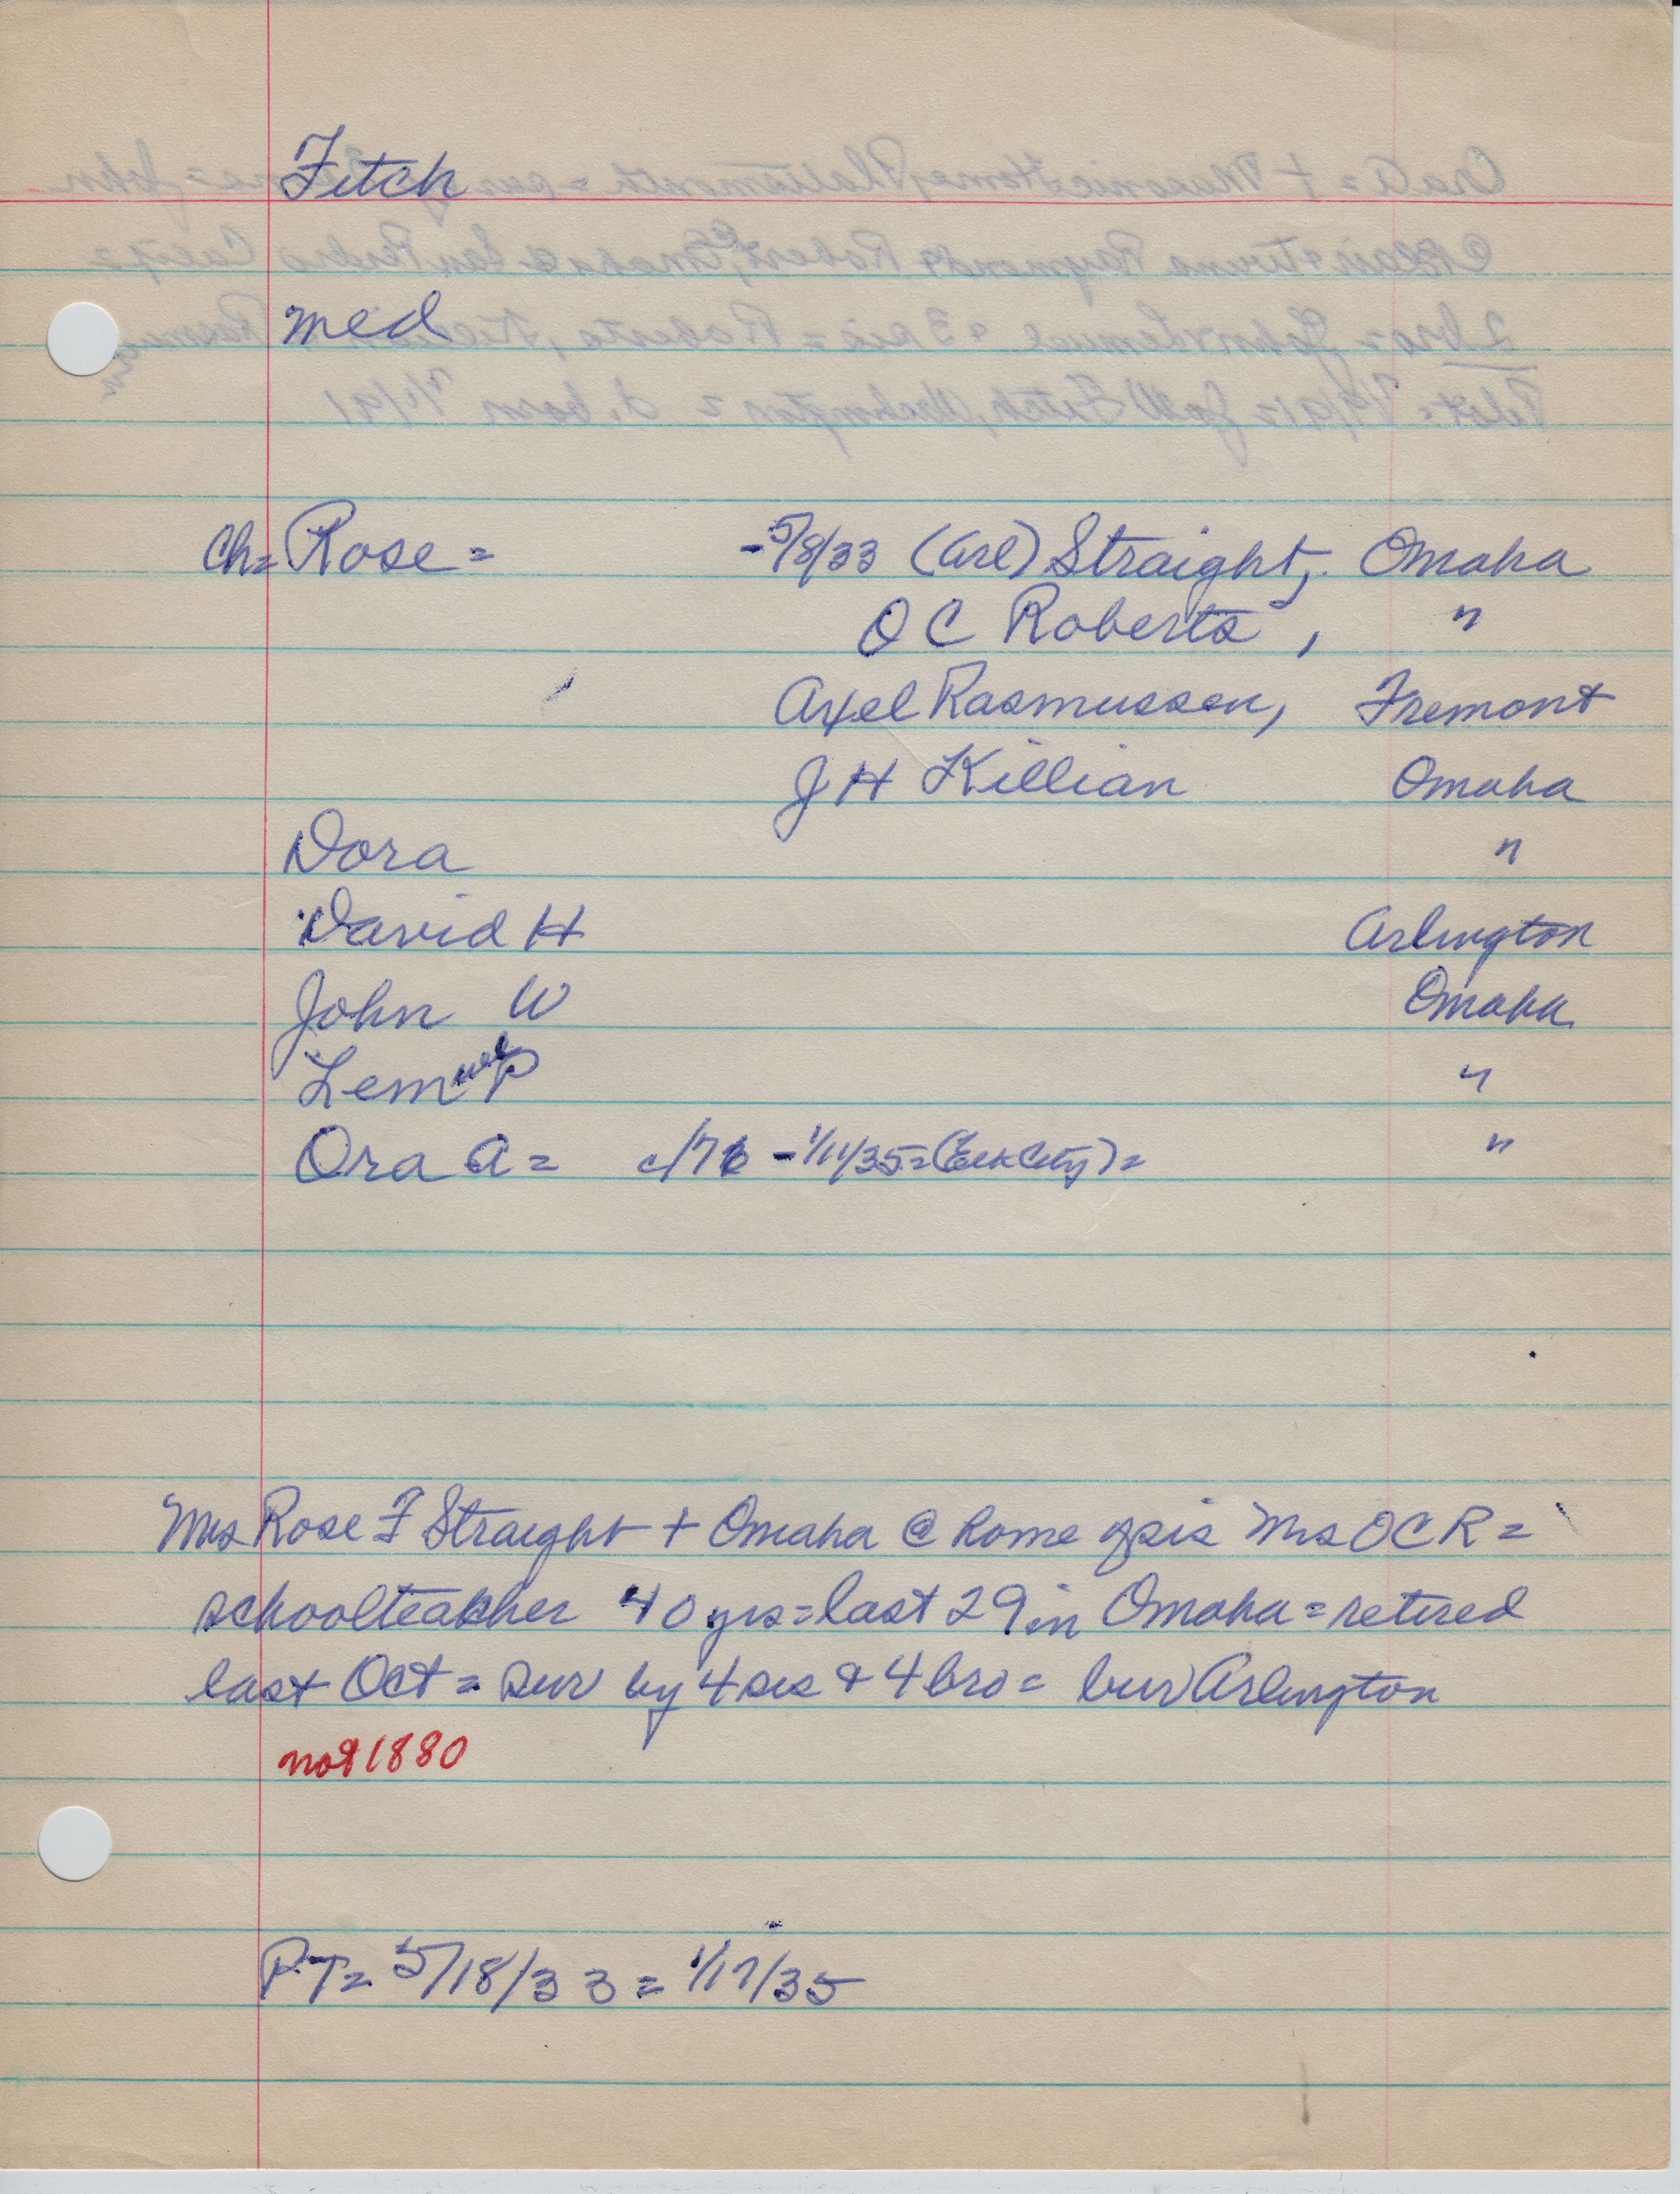 Fitch
med
Ch= Rose = -5/8/33 (Arl) Straight, Omaha
O C Roberts, "
Axel Rasmussen, Fremont
J H Killian Omaha
Dora "
David H Arlington
John W Omaha
Lemuel P "
Ora A = c/76 -1/11/35=(Elk City)= "
Mrs Rose F Straight + Omaha @ home of sis Mrs O C R =
schoolteacher 40 yrs=last 29 in Omaha=retired
last Oct = sur by 4 sis & 4 bro = bur Arlington
not 1880
PT= 5/18/33 = 1/17/35